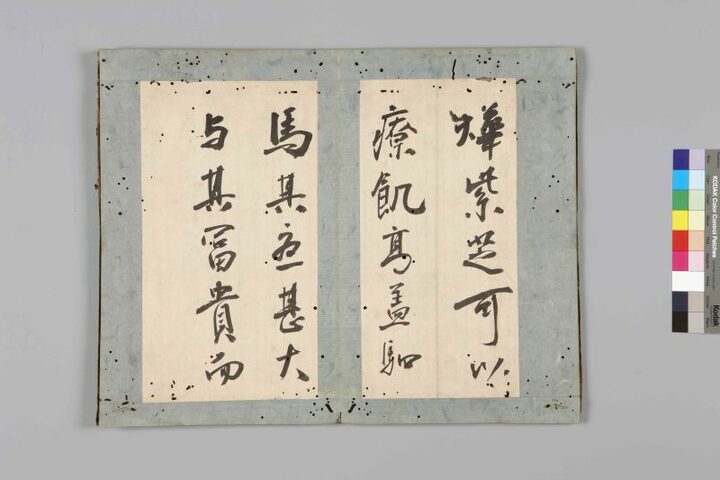 燁紫芝可以
療飢高盖駟
馬其憂甚大
与其冨貴而
KODAK Color Control Patches
Kodak